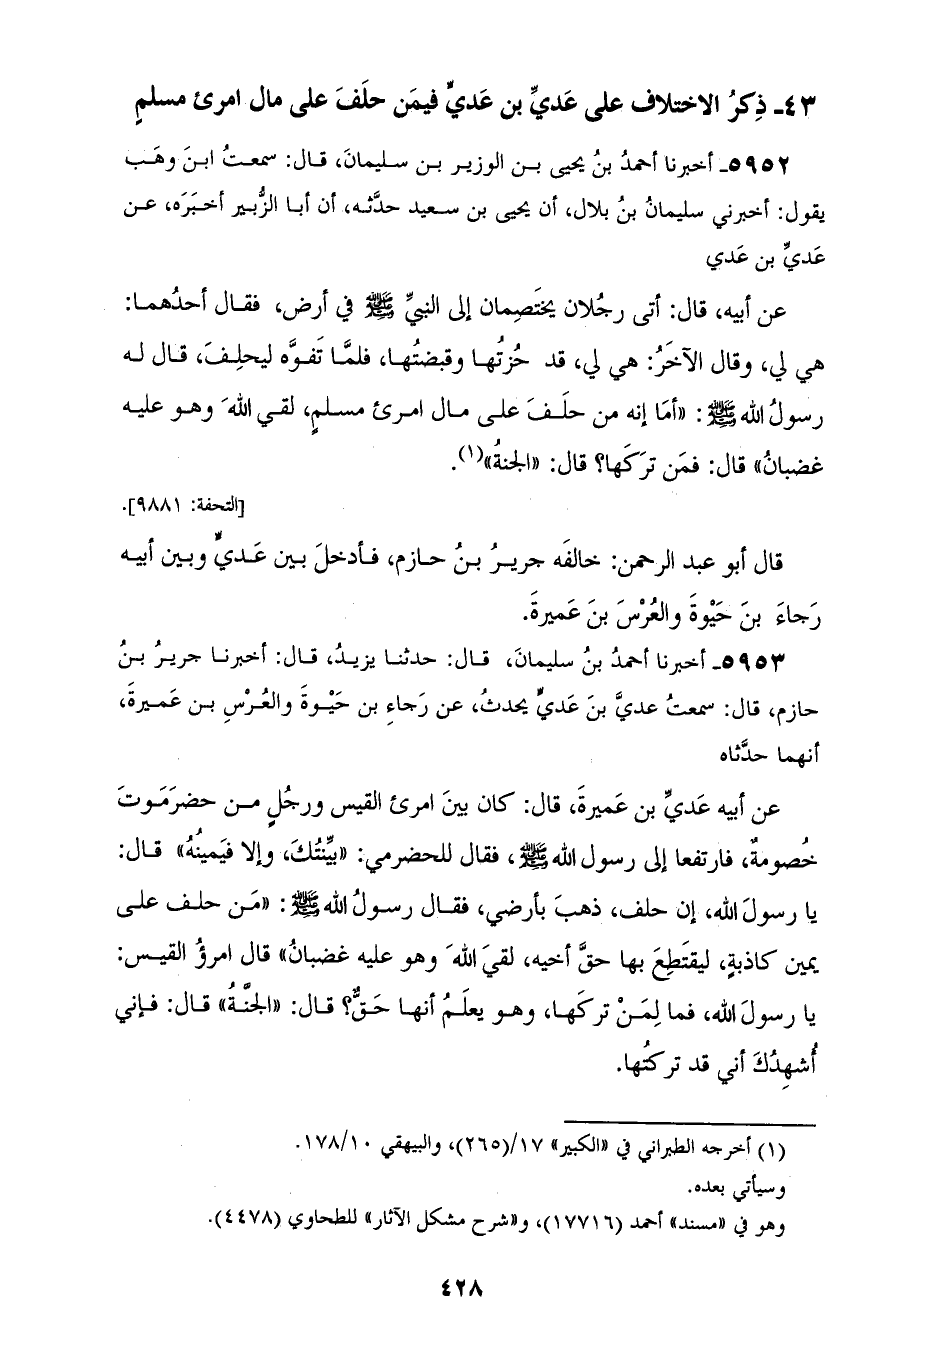 ٤٣ـ ذِكرُ الاختلاف على عَديِّ بن عَديٍّ فيمَن حلَفَ على مال امرئ مسلمٍ
٥٩٥٢ـ أخبرنا أحمدُ بنُ يحيى بـن الوزير بن سليمانَ، قال: سمعتُ ابنَ وهَب
يقول: أخبرني سليمانُ بنُ بلال، أن يحيى بن سعيد حدَّثه، أن أبا الزُّبير أخبَرَه، عن
عَديِّ بن عَدي
عن أبيه، قال: أتى رجُلان يختَصِمان إلى النبيِّ ﷺ في أرض، فقال أحدُهما:
هي لي، وقال الآخَرُ: هي لي، قد حُزتُها وقبضتُها، فلمَّا تَفوَّه ليحلِفَ، قال له
رسولُ الله ﷺ: «أمَا إنه من حلَفَ على مال امرئ مسلمٍ، لقي اللهَ وهو عليه
غضبانُ» قال: فمَن تركَها؟ قال: «الجنةُ»(١).
[التحفة: ٩٨٨١].
قال أبو عبد الرحمن: خالفَه جريرُ بنُ حازم، فأدخلَ بين عَديٍّ وبين أبيه
رَجاءَ بنَ حَيْوةَ والعُرْسَ بنَ عَميرةَ.
٥٩٥٣ـ أخبرنا أحمدُ بنُ سليمانَ، قال: حدثنا يزيدُ، قال: أخبرنا جريرُ بنُ
حازم، قال: سمعتُ عديَّ بنَ عَديٍّ يحدثُ، عن رَجاءِ بن حَيْوةَ والعُرْسِ بن عَميرةَ،
أنهما حدَّثاه
عن أبيه عَديِّ بن عَميرةَ، قال: كان بينَ امرئ القيس ورجُلٍ من حضرَمَوتَ
خُصومةٌ، فارتفعا إلى رسول الله ﷺ، فقال للحضرمي: «بيِّنتُكَ، وإلا فيَمينُهُ» قال:
يا رسولَ الله، إن حلف، ذهبَ بأرضي، فقال رسولُ الله ﷺ: «مَن حلف على
يمين كاذبةٍ، ليقتَطِعَ بها حقَّ أخيه، لقيَ اللهَ وهو عليه غضبانُ» قال امرؤُ القيس:
يا رسولَ الله، فما لِمَنْ تركَها، وهو يعلَمُ أنها حَقٌّ؟ قال: «الجنَّةُ» قال: فإني
أُشهِدُكَ أني قد تركتُها.
(١) أخرجه الطبراني في «الكبير» ١٧/(٢٦٥)، والبيهقي ١٠/ ١٧٨.
وسيأتي بعده.
وهو في «مسند» أحمد (١٧٧١٦)، و«شرح مشكل الآثار» للطحاوي (٤٤٧٨).
٤٢٨